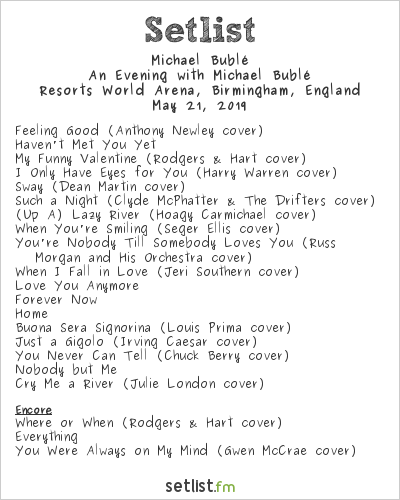 Setlist
Michael Bublé
An Evening with Michael Bublé
Resorts World Arena, Birmingham, England
May 21, 2019
Feeling Good (Anthony Newley cover)
Haven't Met You Yet
My Funny Valentine (Rodgers & Hart cover)
I Only Have Eyes for You (Harry Warren cover)
Sway (Dean Martin cover)
Such a Night (Clyde McPhatter & The Drifters cover)
(Up A) Lazy River (Hoagy Carmichael cover)
When You're Smiling (Seger Ellis cover)
You're Nobody Till Somebody Loves You (Russ
Morgan and His Orchestra cover)
When I Fall in Love (Jeri Southern cover)
Love You Anymore
Forever Now
Home
Buona Sera Signorina (Louis Prima cover)
Just a Gigolo (Irving Caesar cover)
You Never Can Tell (Chuck Berry cover)
Nobody but Me
Cry Me a River (Julie London cover)
Encore
Where or When (Rodgers & Hart cover)
Everything
You Were Always on My Mind (Gwen McCrae cover)
setlist.fm